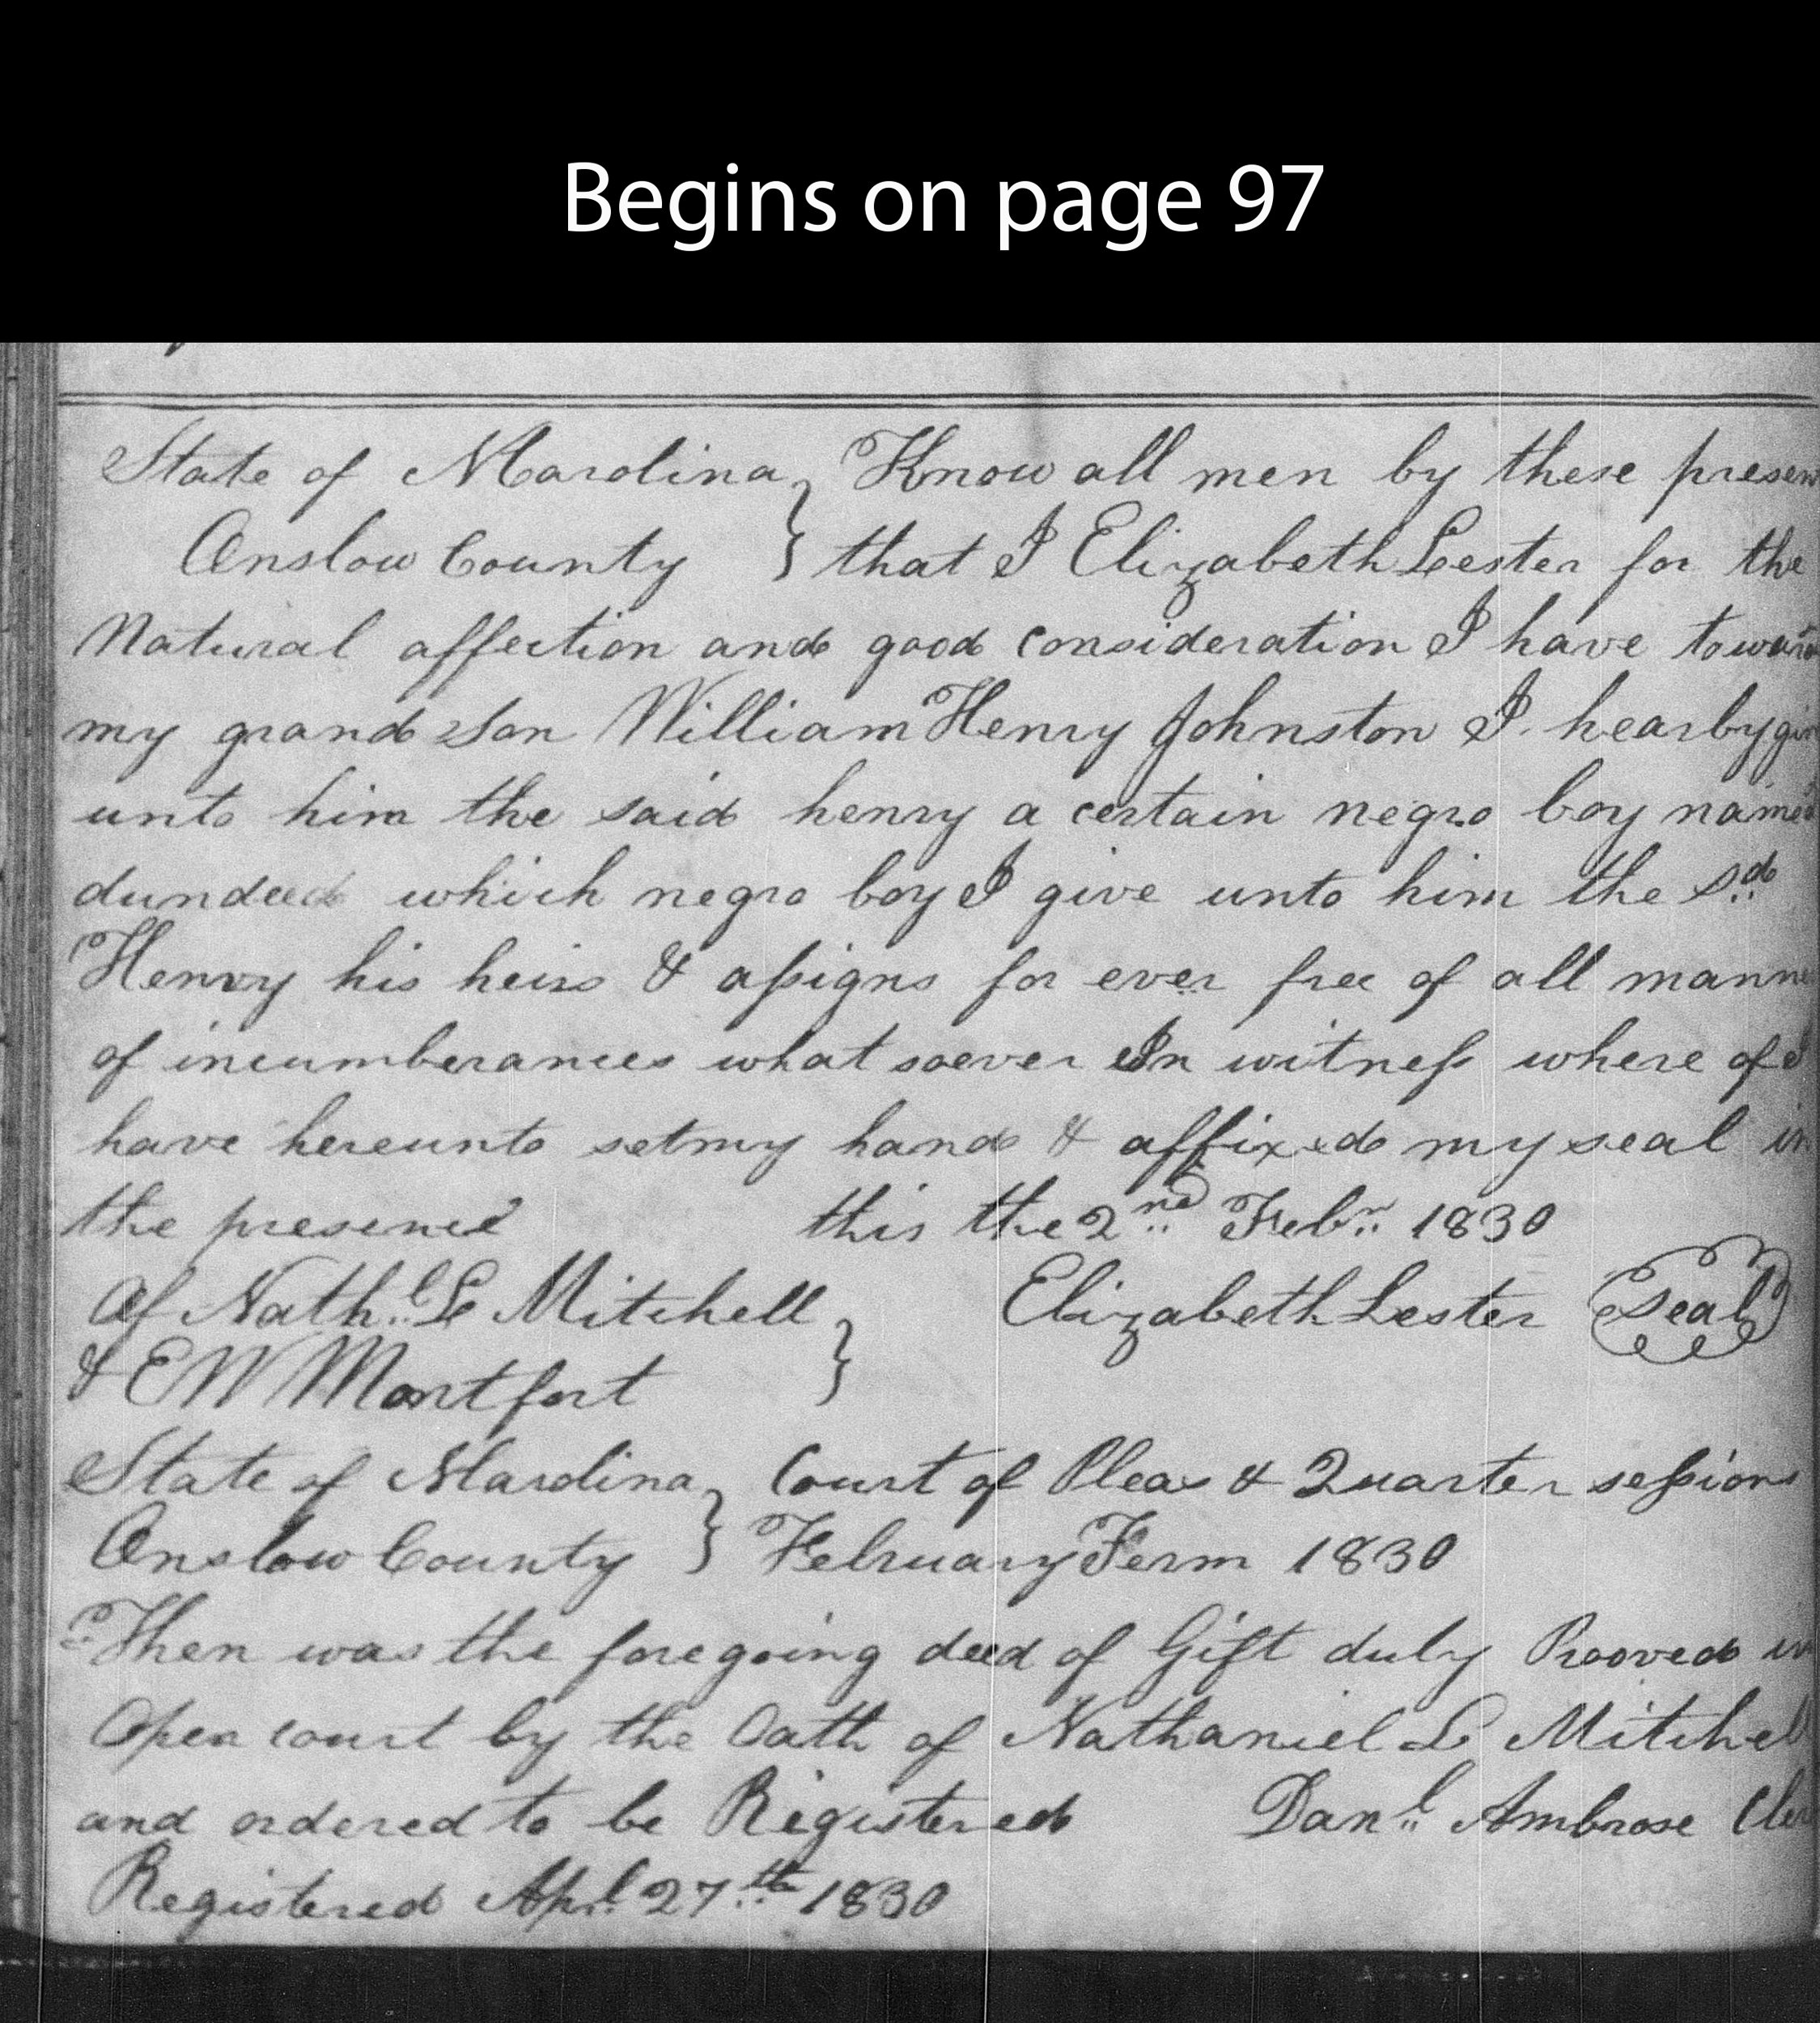 Begins on page 97
State of NCarolina } Know all men by these presen
Onslow County } that I Elizabeth Lester for the
Natural affection and good consideration I have toward
my grand Son William Henry Johnston I hearby giv
unto him the said henry a certain negro boy named
which negro boy I give unto him the sd
Henry his heirs & assigns for ever free of all manne
of incumberances what soever In witness where of I
have hereunto set my hand & affixed my seal in
the presence this the 2nd Febr 1830
Of Nathl L Mitchell } Elizabeth Lester Seal
& E W Montfort
State of NCarolina } Court of Pleas & Quarter sessions
Onslow County } February Term 1830
Then was the foregoing deed of Gift duly Prooved in
Open court by the Oath of Nathaniel L Mitchell
and ordered to be Registered Danl Ambrose Cler
Registered Aprl 27th 1830